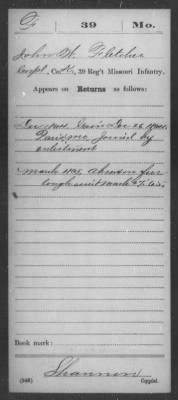 F 39 Mo.
John W. Fletcher
Corpl., Co. K, 39 Reg't Missouri Infantry.
Appears on Returns as follows:
Dec 1864
Paris, Mo. Joined by
enlistment
March 1865, absent on fur
lough since March
Book mark:
Shannon
(546) Copyist.